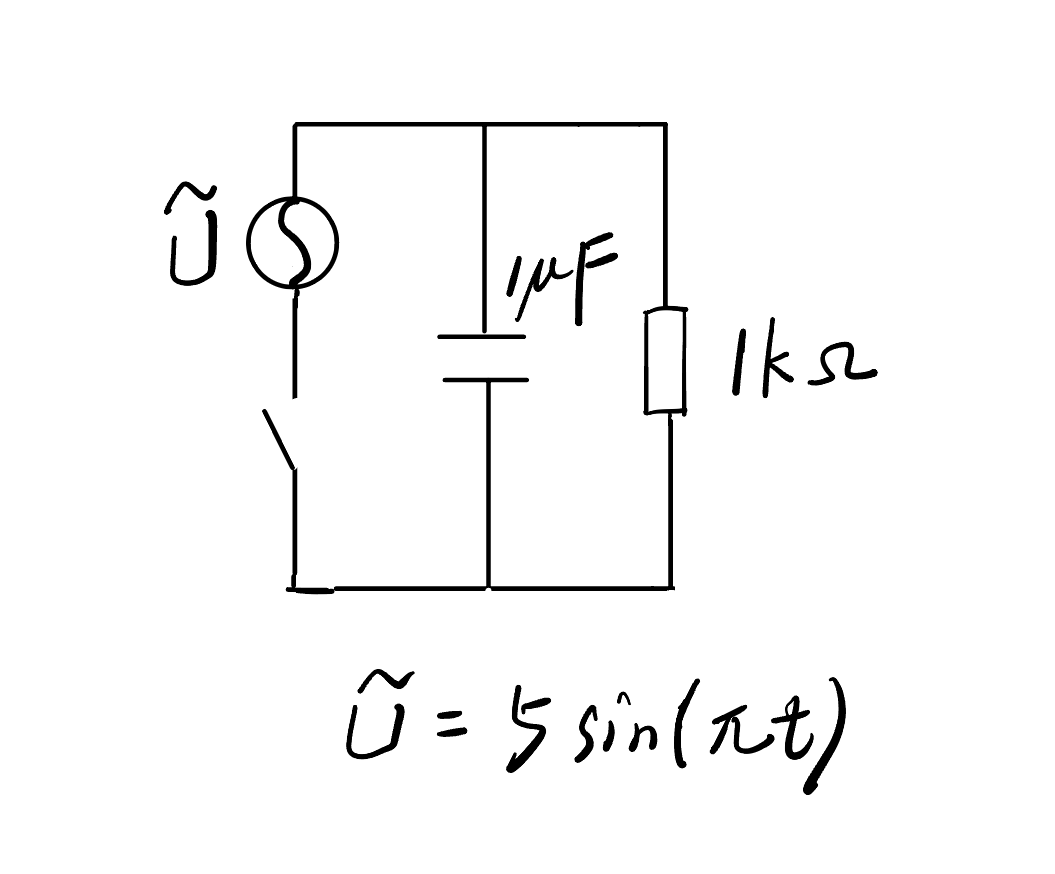 Ũ
1μF
1kΩ
Ũ = 5 sin(πt)